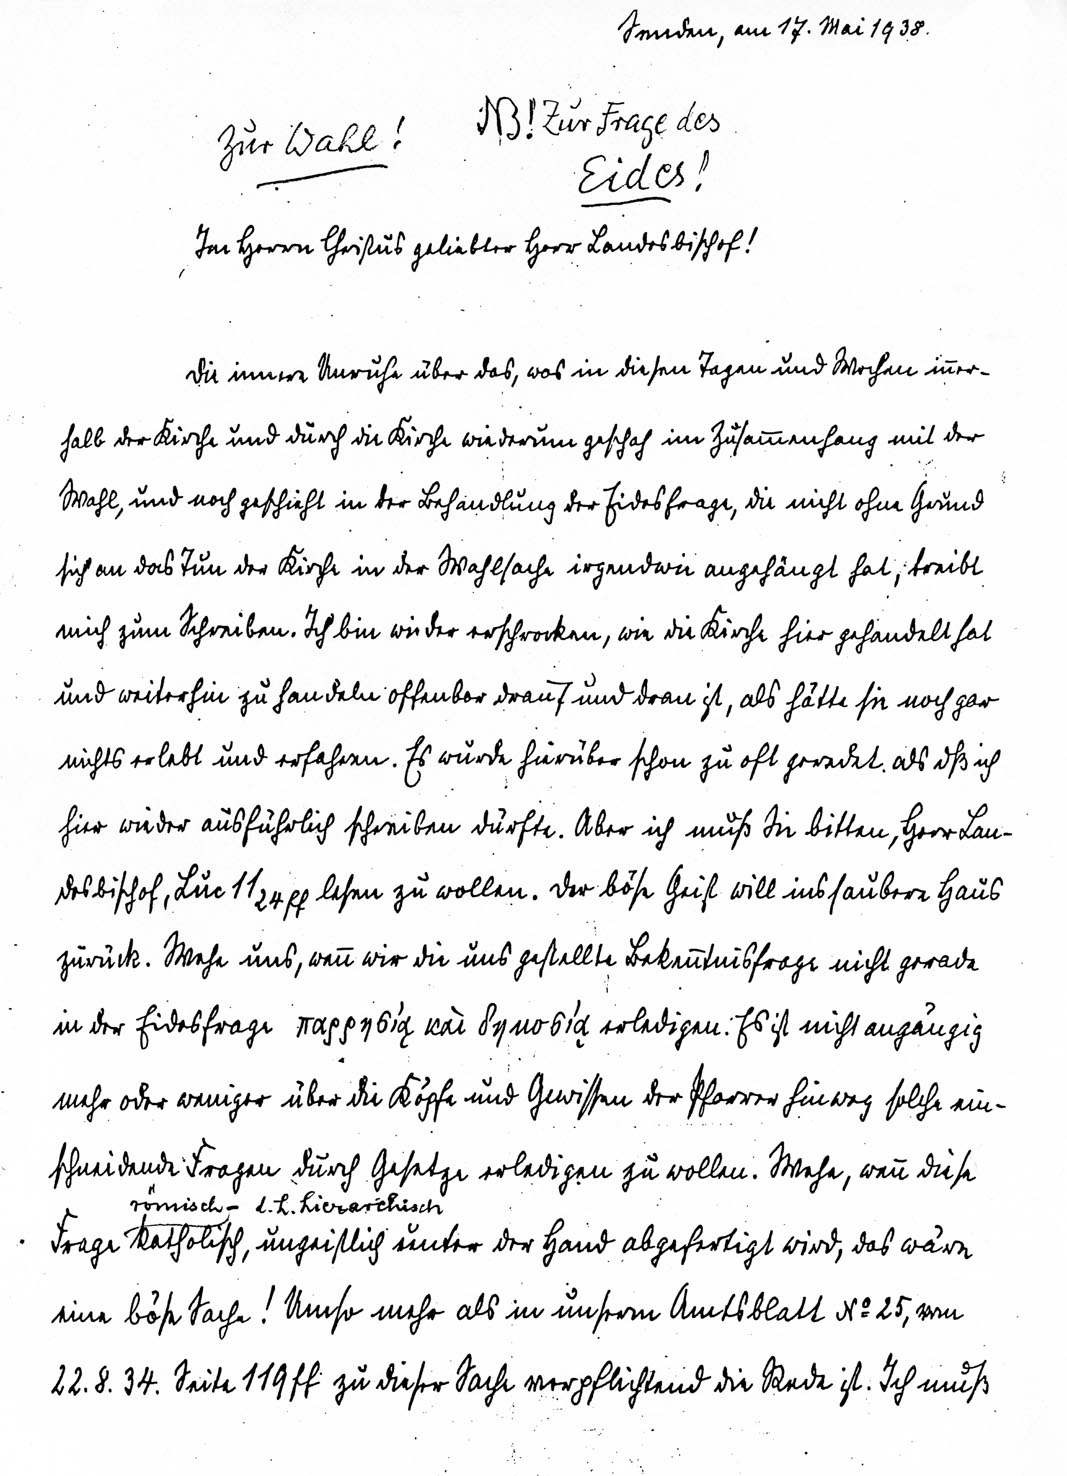 Senden, am 17. Mai 1938.
Zur Wahl!
NB! Zur Frage des
Eides!
Im Herrn Christus geliebter Herr Landesbischof!
Die innere Unruhe über das, was in diesen Tagen und Wochen iñer-
halb der Kirche und durch die Kirche wiederum geschah im Zusam̄enhang mit der
Wahl, und noch geschieht in der Behandlung der Eidesfrage, die nicht ohne Grund
sich an das Tun der Kirche in der Wahlsache irgendwie angehängt hat, treibt
mich zum Schreiben. Ich bin wieder erschrocken, wie die Kirche hier gehandelt hat
und weiterhin zu handeln offenbar drauf und dran ist, als hätte sie noch gar
nichts erlebt und erfahren. Es wurde hierüber schon zu oft geredet, als dß ich
hier wieder ausführlich schreiben dürfte. Aber ich muß Sie bitten, Herr Lan-
desbischof, Luc 11 24 ff lesen zu wollen. Der böse Geist will ins saubere Haus
zurück. Wehe uns, weñ wir die uns gestellte Bekeñtnisfrage nicht gerade
in der Eidesfrage παρρησίᾳ καὶ δημοσίᾳ erledigen. Es ist nicht angängig
mehr oder weniger über die Köpfe und Gewissen der Pfarrer hinweg solche ein-
schneidende Fragen durch Gesetze erledigen zu wollen. Wehe, weñ diese
römisch- d.h. hierarchisch
Frage katholisch, ungeistlich unter der Hand abgefertigt wird, das wäre
eine böse Sache! Umso mehr als in unserem Amtsblatt No 25, vom
22. 8. 34. Seite 119 ff zu dieser Sache verpflichtend die Rede ist. Ich muß